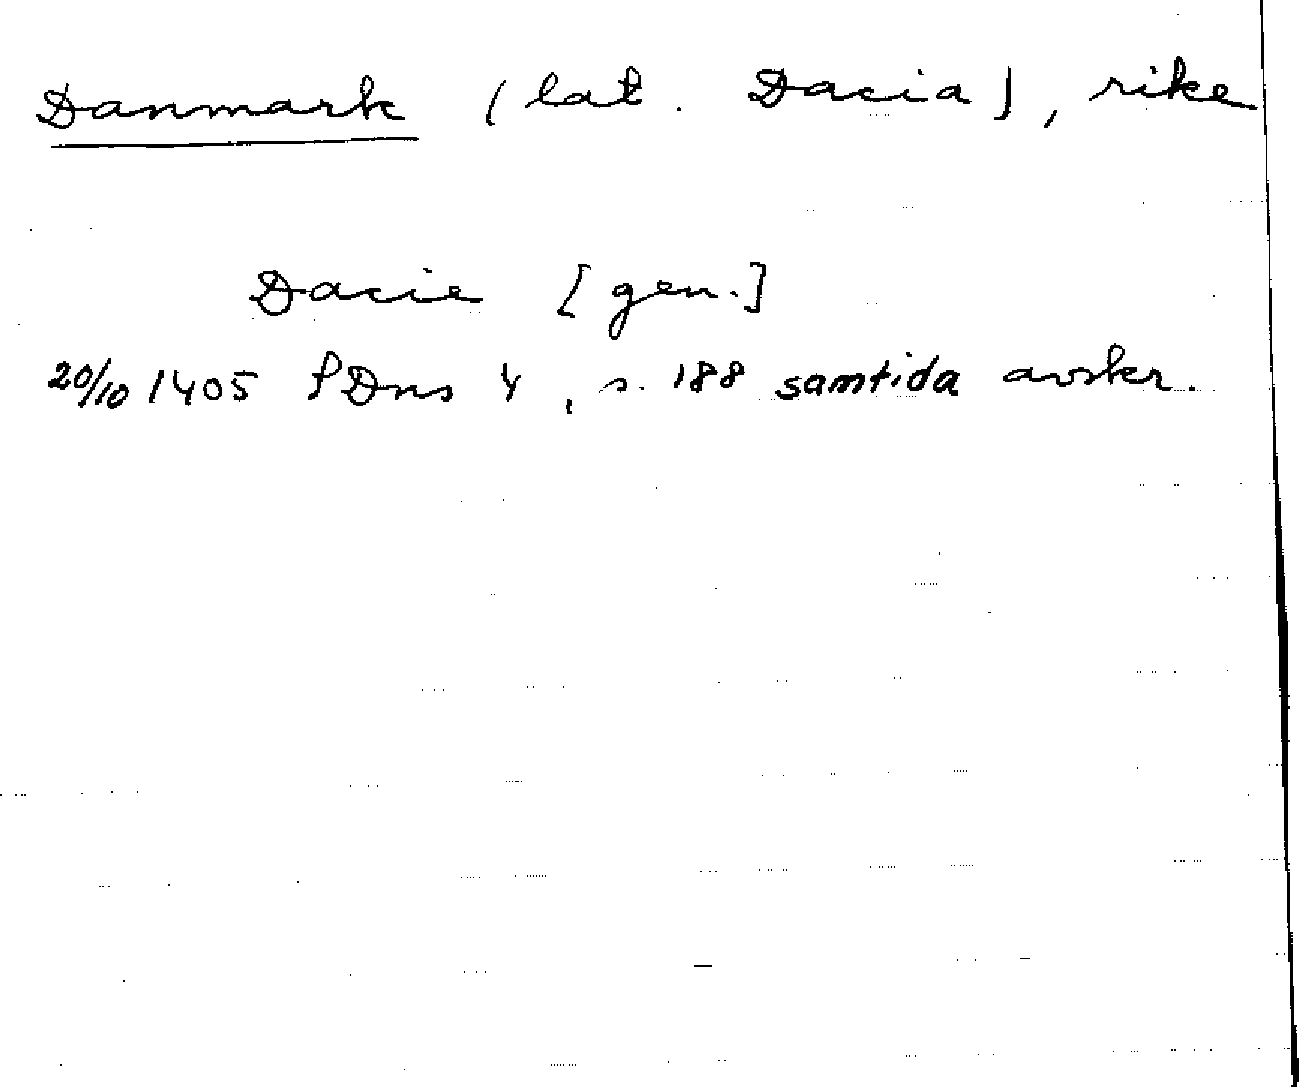 Danmark (lat. Dacia), rike
Dacie [gen.]
20/10 1405 SDns 4, s. 188 samtida avskr.